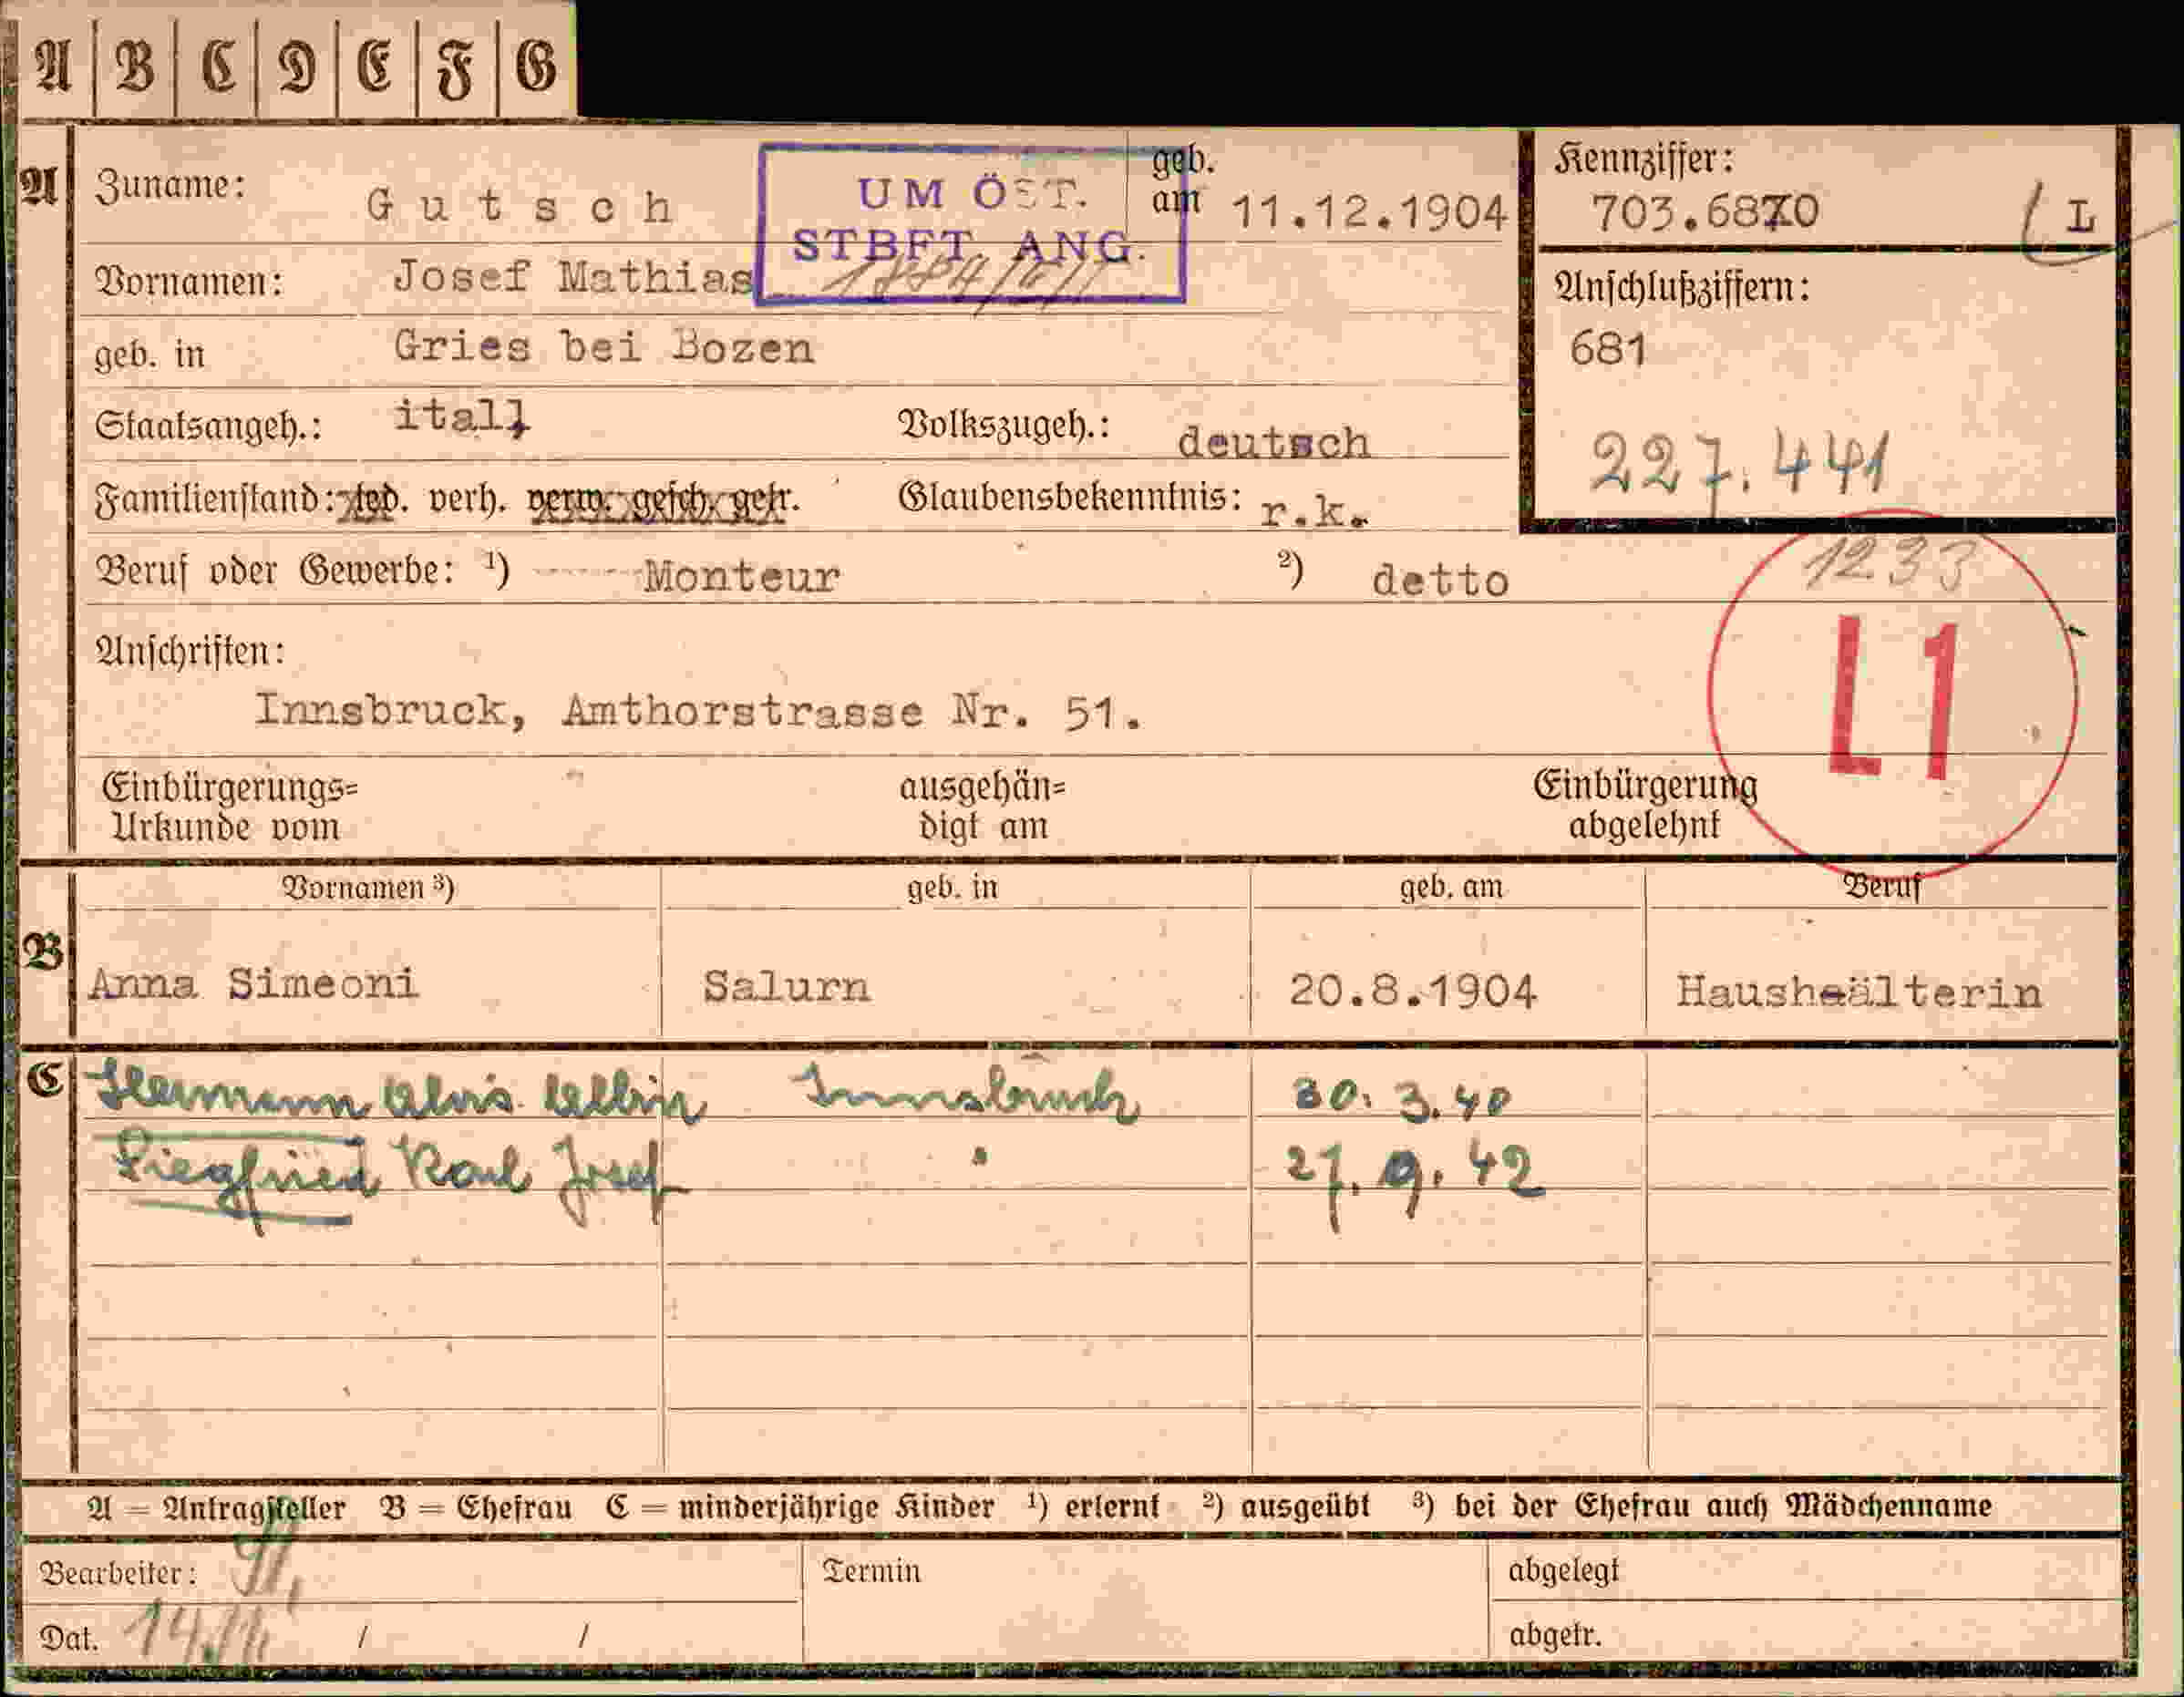 A B C D E F G
A Zuname: Gutsch
UM ÖST.
STBFT ANG.
geb.
am 11.12.1904
Kennziffer:
703.6870 L
Vornamen: Josef Mathias
Anschlußziffern:
681
227.441
geb. in Gries bei Bozen
Staatsangeh.: ital. Volkszugeh.: deutsch
Familienstand: led. verh. verw. gesch. getr. Glaubensbekenntnis: r.k.
Beruf oder Gewerbe: ¹) Monteur ²) detto
1233
L1
Anschriften:
Innsbruck, Amthorstrasse Nr. 51.
Einbürgerungs= ausgehän= Einbürgerung
Urkunde vom digt am abgelehnt
Vornamen ³) geb. in geb. am Beruf
B Anna Simeoni Salurn 20.8.1904 Haushaälterin
C Hermann Alois Albin Innsbruck 30. 3. 40
Siegfried Karl Josef " 27. 9. 42
A = Antragsteller B = Ehefrau C = minderjährige Kinder ¹) erlernt ²) ausgeübt ³) bei der Ehefrau auch Mädchenname
Bearbeiter: Termin abgelegt
Dat. / / abgetr.